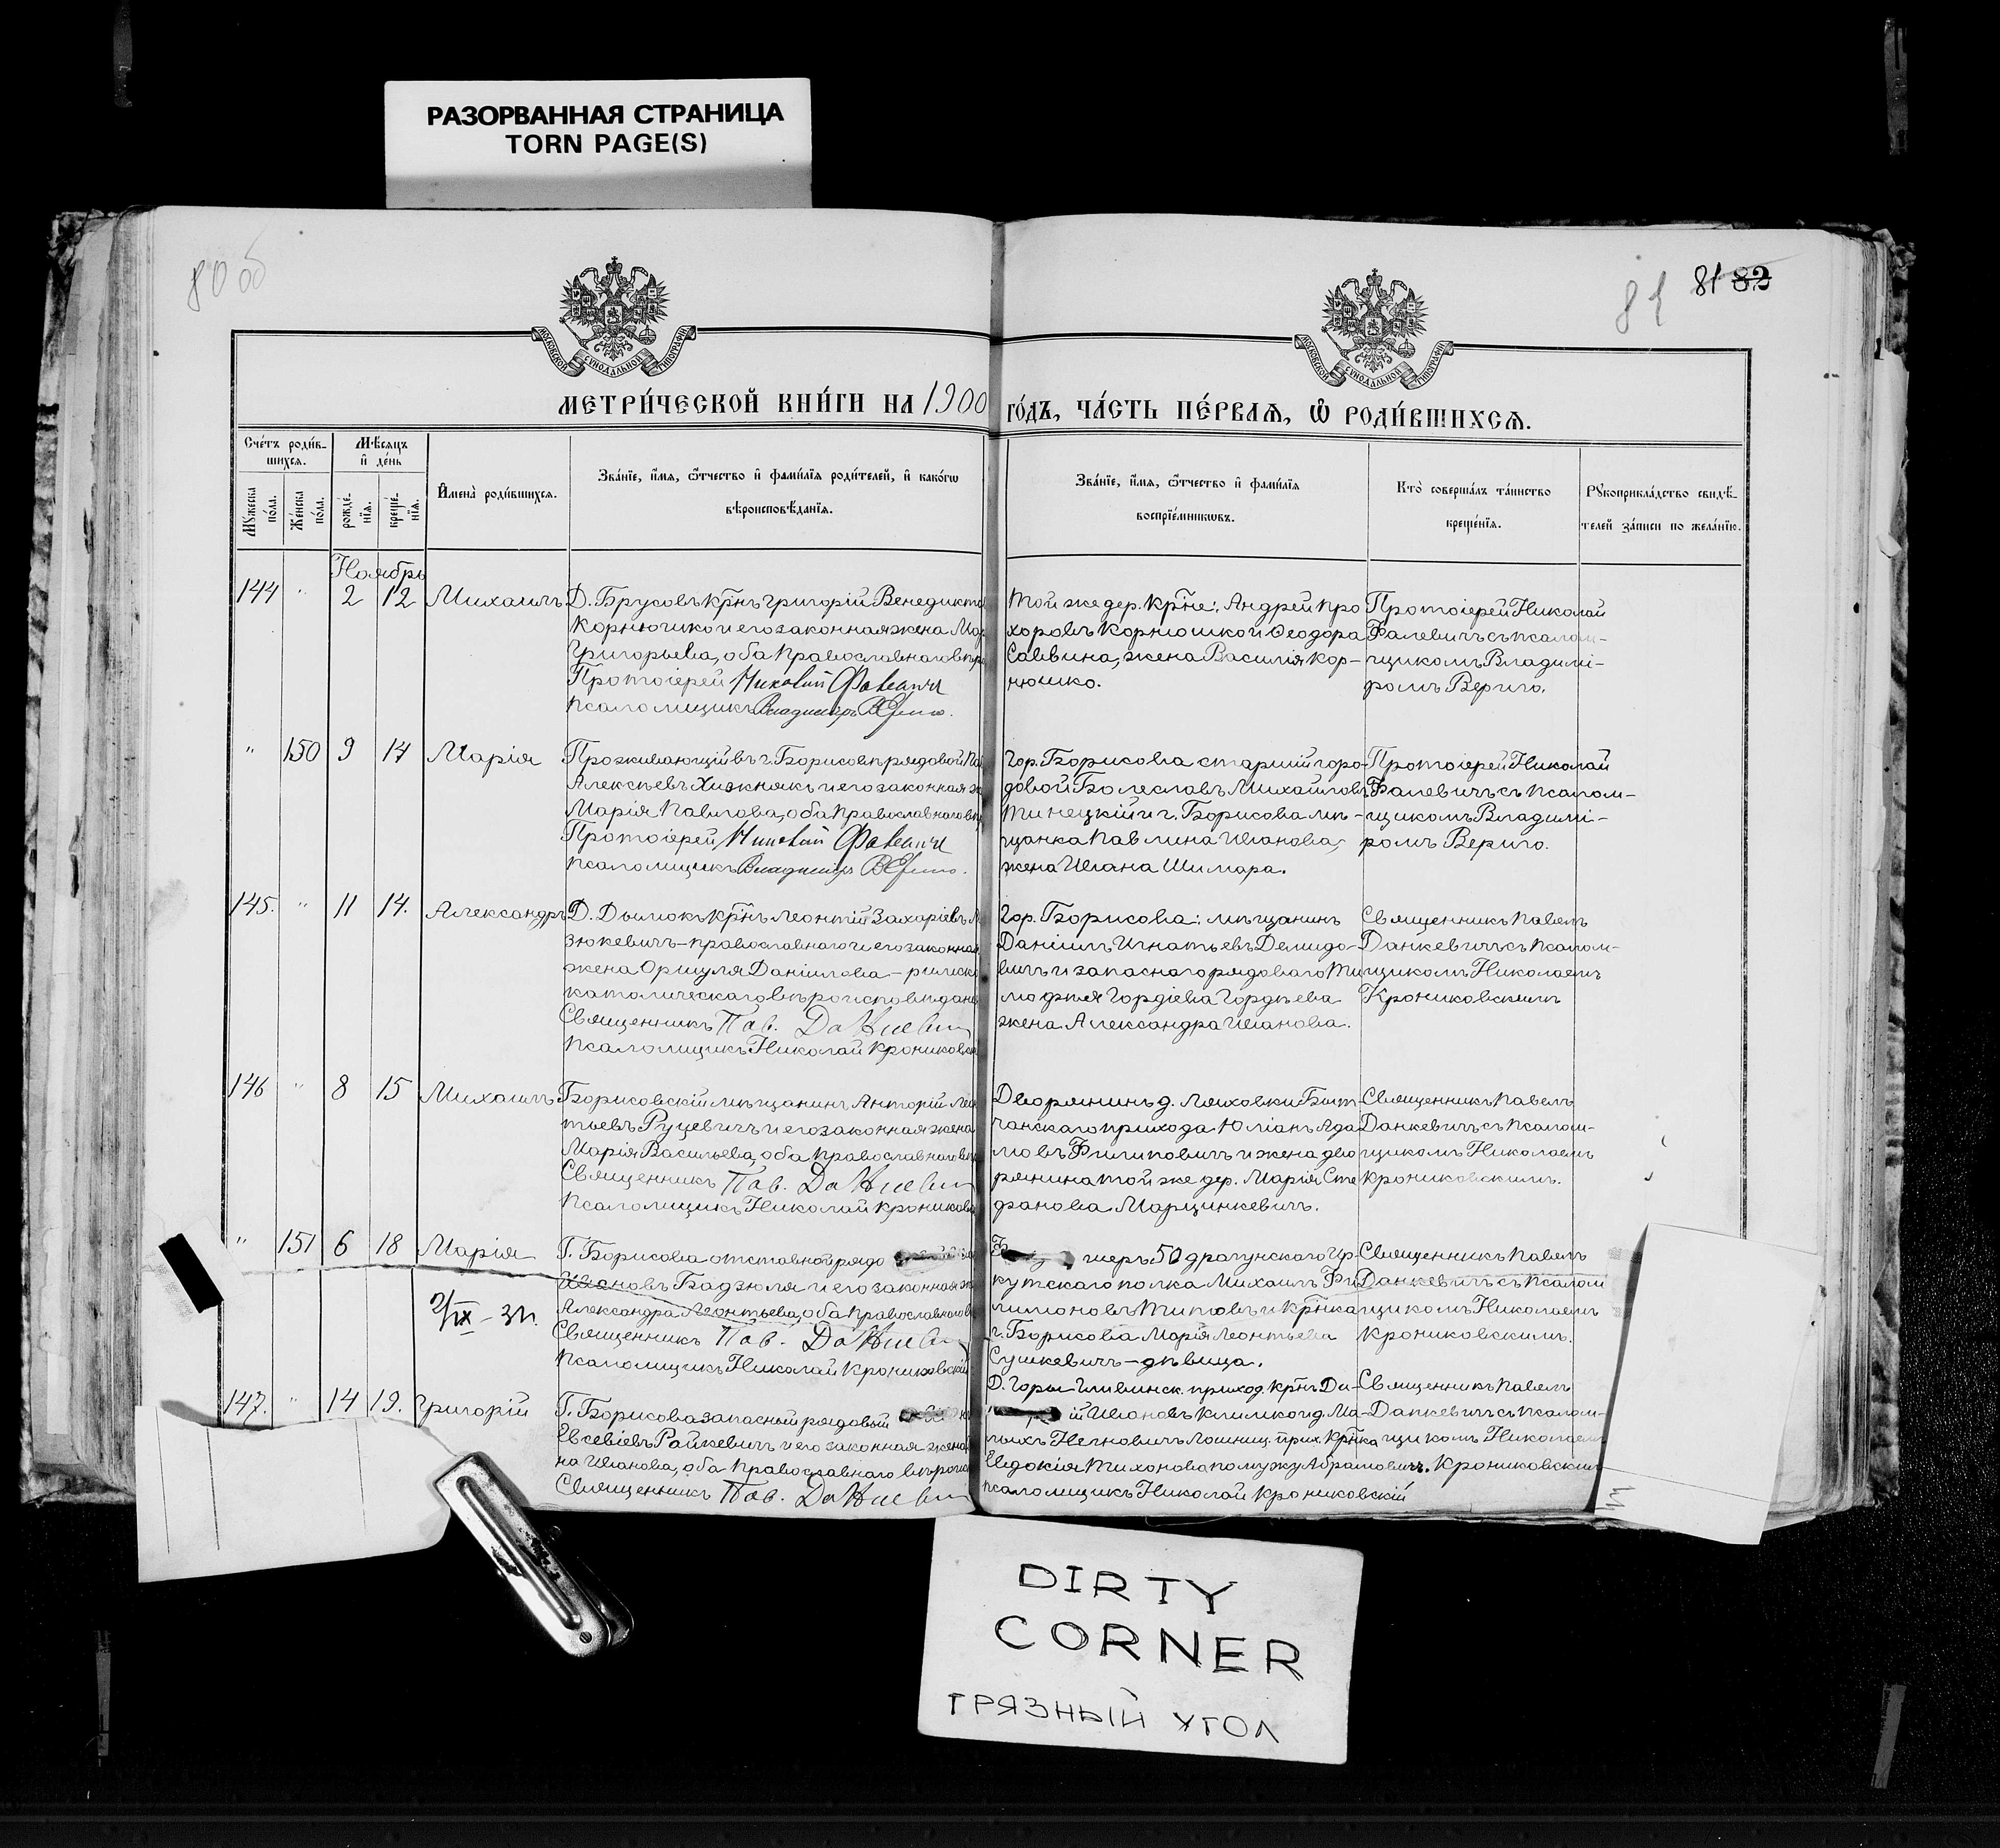 РАЗОРВАННАЯ СТРАНИЦА
TORN PAGE(S)
80 об
81
81 82
МОСКОВСКОЙ СУНОДАЛЬНОЙ ТИПОГРАФІИ
МОСКОВСКОЙ СУНОДАЛЬНОЙ ТИПОГРАФІИ
МЕТРИ́ЧЕСКОЙ КНИ́ГИ НА 1900
го́дъ, ча́сть пе́рваѧ, ѡ҆ роди́вшихсѧ.
Сче́тъ роди́в-
шихсѧ.
Мѣ́сѧцъ
и҆ де́нь
Мꙋжеска по́ла.
Же́нска по́ла.
рожде́-
нїѧ.
креще́-
нїѧ.
И҆мена̀ роди́вшихсѧ.
Зва́нїе, и҆́мѧ, ѻ҆́тчество и҆ фами́лїѧ роди́телей, и҆ како́гѡ
вѣроисповѣ́данїѧ.
Зва́нїе, и҆́мѧ, ѻ҆́тчество и҆ фами́лїѧ
воспрїе́мникѡвъ.
Кто̀ соверша́лъ та́инство
креще́нїѧ.
Рꙋкоприкла́дство свидѣ́-
телей за́писи по жела́нїю.
Ноябрь
144 " 2 12 Михаилъ
Д. Брусовъ кр̃нъ Григорій Венедикто
Корнюшко и его законная жена Мар
Григорьева, оба православнаго
Протоіерей Николай Фалевичъ
Псаломщикъ Владиміръ Вериго.
Той же дер. кр̃не: Андрей Про
хоровъ Корнюшко и Ѳеодора
Саввина, жена Василія Кор-
нюшко.
Протоіерей Николай
Фалевичъ съ псалом-
щикомъ Владимі-
ромъ Вериго.
" 150 9 14 Марія
Проживающій въ г. Борисовѣ рядовой
Алексѣевъ Хижнякъ и его законная
Марія Павлова, оба православнаго
Протоіерей Николай Фалевичъ
Псаломщикъ Владиміръ Вериго.
Гор. Борисова старшій горо-
довой Болеславъ Михайловъ
Тинецкій и г. Борисова мѣ-
щанка Павлина Иванова,
жена Ивана Шимара.
Протоіерей Николай
Фалевичъ съ псалом-
щикомъ Владимі-
ромъ Вериго.
145. " 11 14. Александръ
Д. Дымокъ кр̃нъ Леонтій Захаріевъ
зюкевичъ - православнаго и его законная
жена Оршуля Даніилова - римско
католическаго вѣроисповѣдан
Священникъ Пав. Данкевичъ
Псаломщикъ Николай Крониковск
Гор. Борисова: мѣщанинъ
Даніилъ Игнатьевъ Демидо-
вичъ и запаснаго рядоваго Ти
моѳея Гордіева Гордѣева
жена Александра Иванова.
Священникъ Павелъ
Данкевичъ съ псалом-
щикомъ Николаемъ
Крониковскимъ
146 " 8 15 Михаилъ
Борисовскій мѣщанинъ Антоній Леон
тьевъ Руцевичъ и его законная жена
Марія Васильева, оба православнаго
Священникъ Пав. Данкевичъ
Псаломщикъ Николай Крониковск
Дворянинъ д. Ляховки Бит-
чанскаго прихода Юліанъ Ада
мовъ Филиповичъ и жена дво
рянина той же дер. Марія Сте
фанова Марцинкевичъ.
Священникъ Павелъ
Данкевичъ съ псалом-
щикомъ Николаемъ
Крониковскимъ.
" 151 6 18 Марія
Г. Борисова отставной рядо
Ивановъ Бадзюля и его законная
Александра Леонтьева, оба православнаго
Священникъ Пав. Данкевичъ
Псаломщикъ Николай Крониковскій
церъ 50 драгунскаго Ир-
кутскаго полка Михаилъ Фи
лимоновъ Титовъ и кр̃нка
г. Борисова Марія Леонтьева
Сушкевичъ - дѣвица.
Священникъ Павелъ
Данкевичъ съ псалом
щикомъ Николаемъ
Крониковскимъ.
2/IX - 31.
147. " 14 19. Григорій
Г. Борисова запасный рядовой
Евсевіевъ Райкевичъ и его законная жена
на Иванова, оба православнаго вѣроис
Священникъ Пав. Данкевичъ
Д. Горы Гливинск. приход. кр̃нъ Ди-
ій Ивановъ Климко и д. Ма-
лыхъ Негновичъ Лошниц. прих. кр̃нка
Евдокія Тихонова по мужу Абрамовичъ.
Псаломщикъ Николай Крониковскій
Священникъ Павелъ
Данкевичъ съ псалом-
щикомъ Николаем
Крониковским
DIRTY
CORNER
ГРЯЗНЫЙ УГОЛ